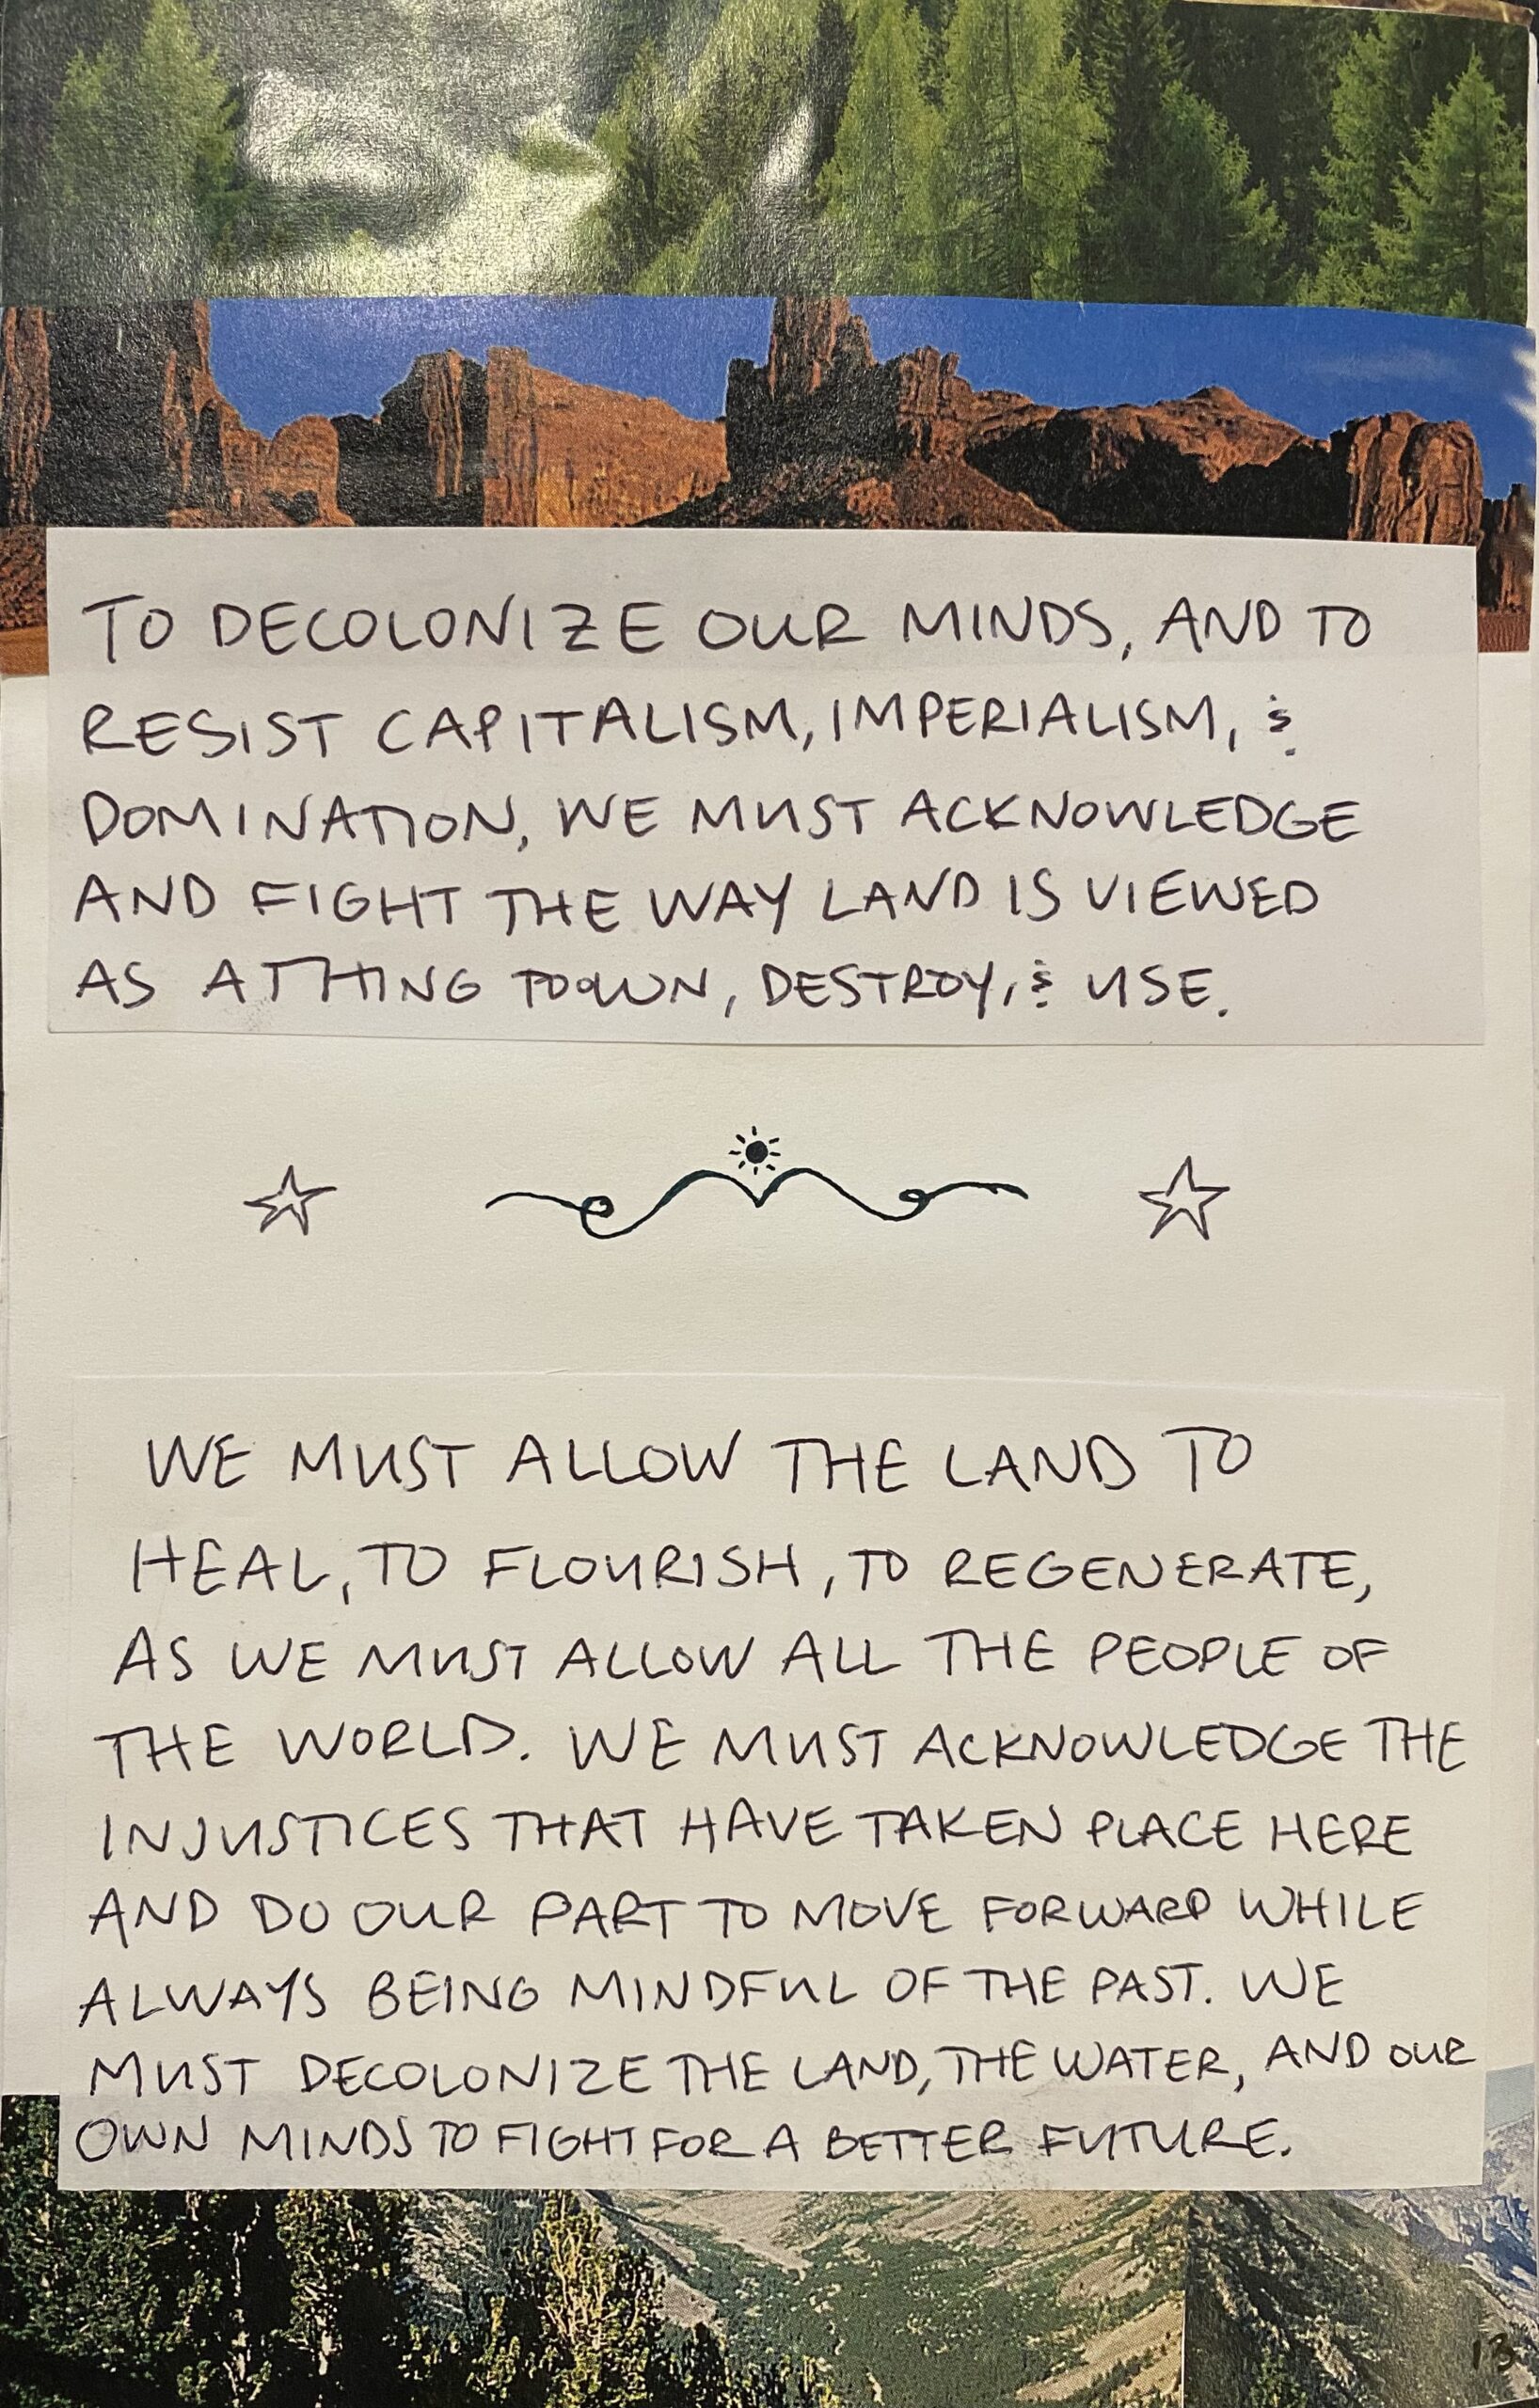 TO DECOLONIZE OUR MINDS, AND TO
RESIST CAPITALISM, IMPERIALISM, &
DOMINATION, WE MUST ACKNOWLEDGE
AND FIGHT THE WAY LAND IS VIEWED
AS A THING TO OWN, DESTROY, & USE.
WE MUST ALLOW THE LAND TO
HEAL, TO FLOURISH, TO REGENERATE,
AS WE MUST ALLOW ALL THE PEOPLE OF
THE WORLD. WE MUST ACKNOWLEDGE THE
INJUSTICES THAT HAVE TAKEN PLACE HERE
AND DO OUR PART TO MOVE FORWARD WHILE
ALWAYS BEING MINDFUL OF THE PAST. WE
MUST DECOLONIZE THE LAND, THE WATER, AND OUR
OWN MINDS TO FIGHT FOR A BETTER FUTURE.
13